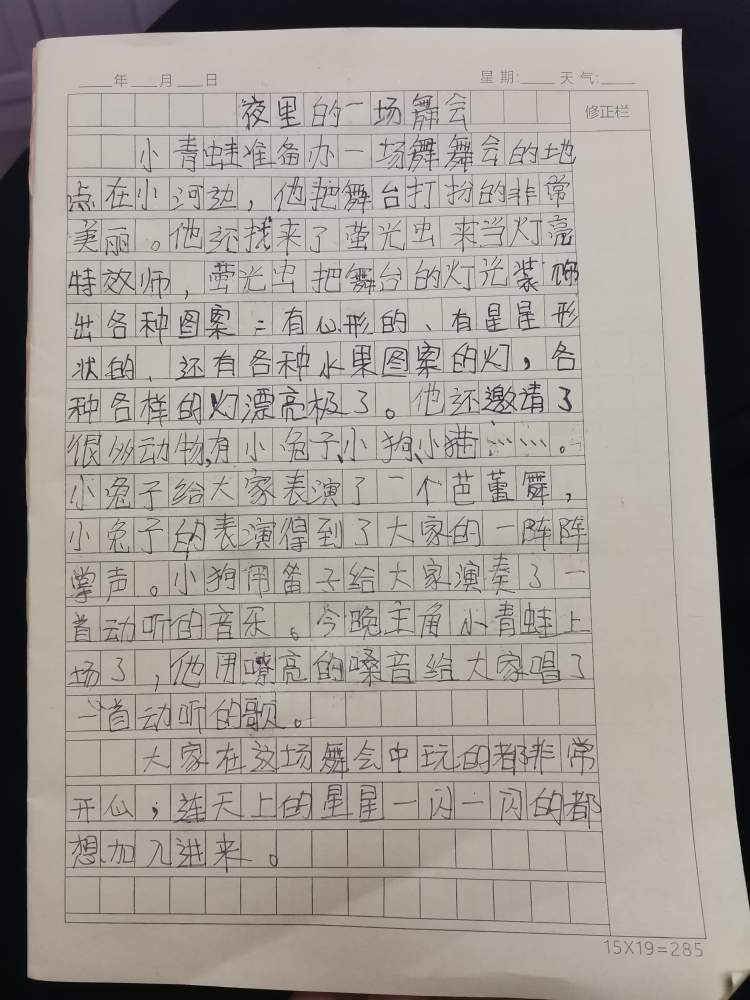 ____年____月____日 星期:____天气:____
夜里的一场舞会
修正栏
小青蛙准备办一场舞舞会的地
点在小河边，他把舞台打扮的非常
美丽。他还找来了萤光虫来当灯亮
特效师，萤光虫把舞台的灯光装饰
出各种图案：有心形的、有星星形
状的、还有各种水果图案的灯，各
种各样的灯漂亮极了。他还邀请了
很多动物,有小兔子、小狗、小猫……。
小兔子给大家表演了一个芭蕾舞，
小兔子的表演得到了大家的一阵阵
掌声。小狗用笛子给大家演奏了一
首动听的音乐。今晚主角小青蛙上
场了，他用嘹亮的嗓音给大家唱了
一首动听的歌。
大家在这场舞会中玩的都非常
开心，连天上的星星一闪一闪的都
想加入进来。
15X19=285